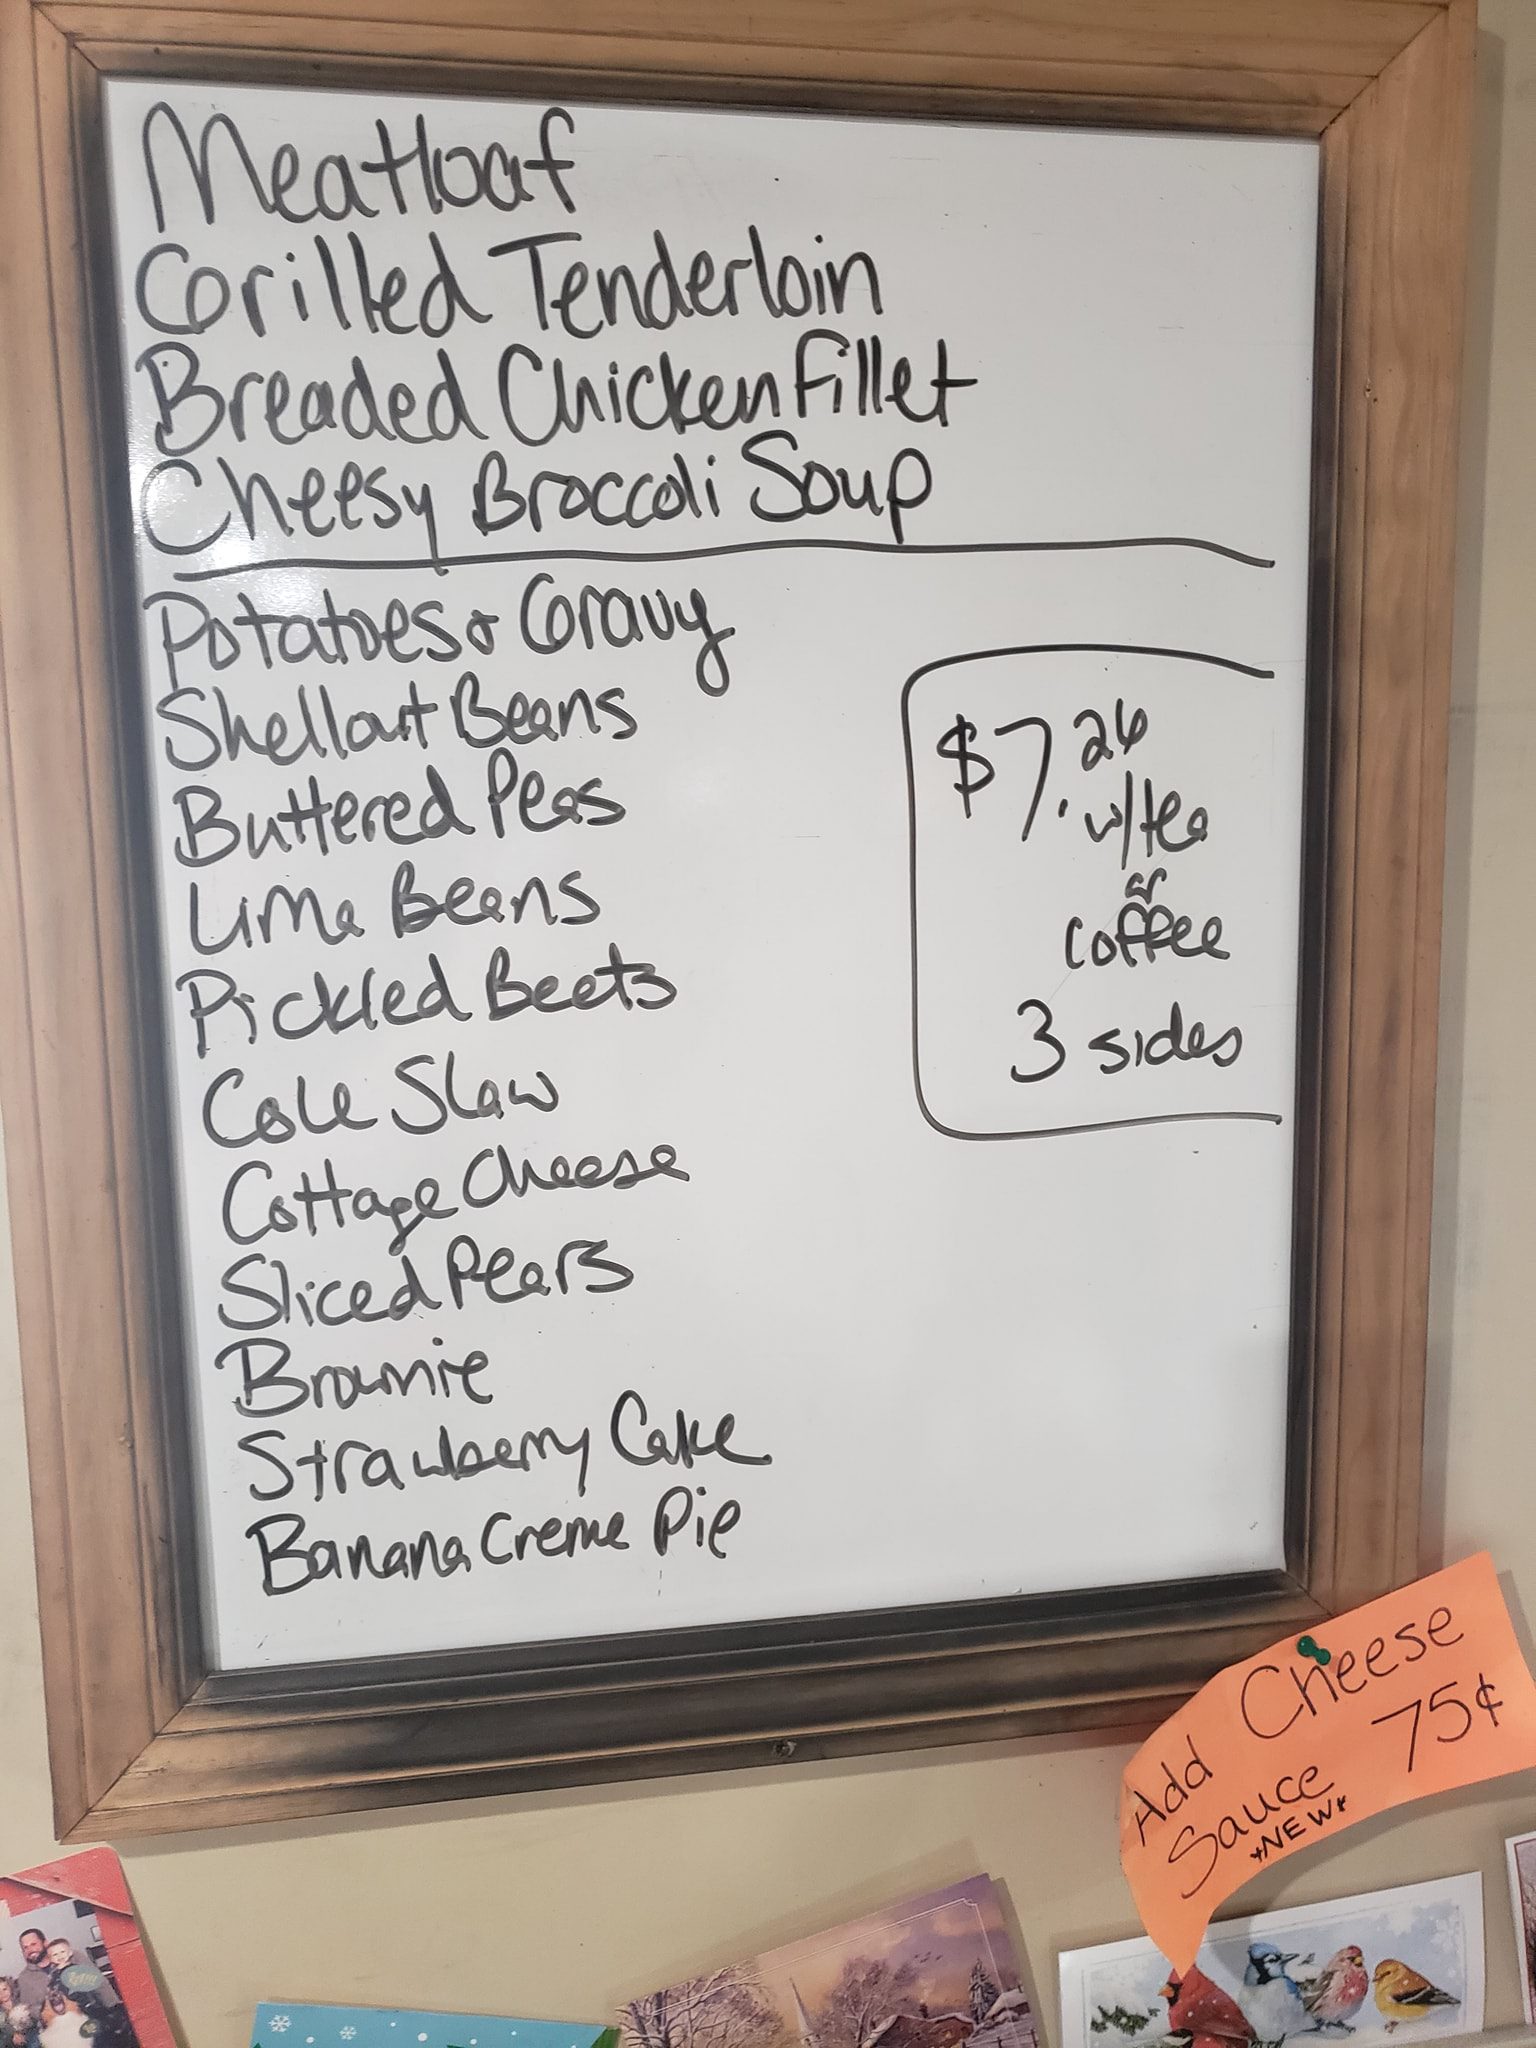 Meatloaf
Grilled Tenderloin
Breaded Chicken Fillet
Cheesy Broccoli Soup
Potatoes & Gravy
Shellout Beans
Buttered Peas
Lima Beans
Pickled Beets
Cole Slaw
Cottage Cheese
Sliced Pears
Brownie
Strawberry Cake
Banana Creme Pie
$7.26
w/tea
or
coffee
3 sides
Add Cheese
Sauce 75¢
*NEW*